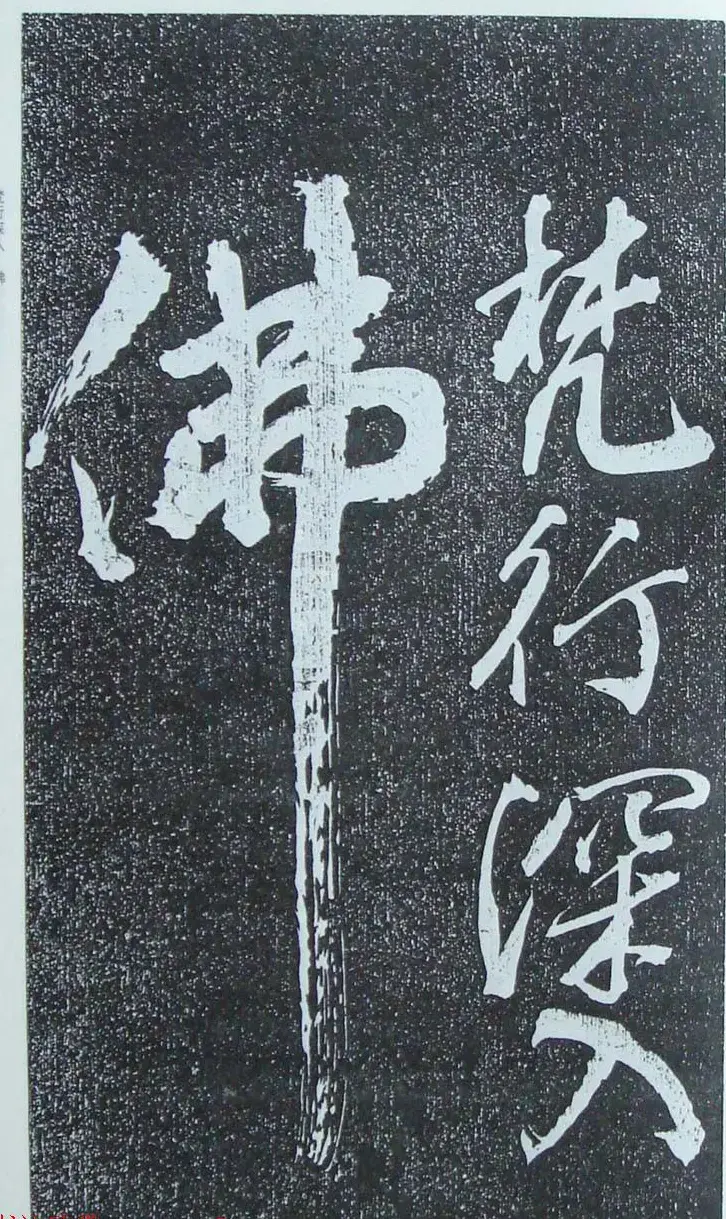 梵行深入
佛